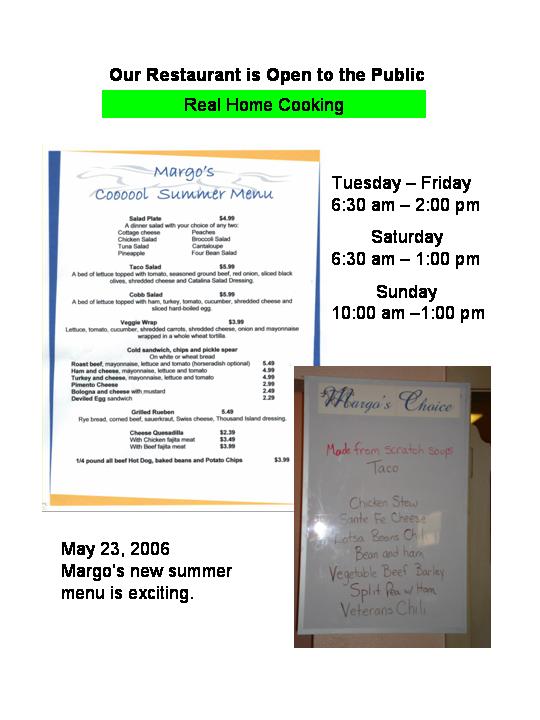 Our Restaurant is Open to the Public
Real Home Cooking
Margo's
Coooool Summer Menu
Salad Plate $4.99
A dinner salad with your choice of any two:
Cottage cheese Peaches
Chicken Salad Broccoli Salad
Tuna Salad Cantaloupe
Pineapple Four Bean Salad
Taco Salad $5.99
A bed of lettuce topped with tomato, seasoned ground beef, red onion, sliced black
olives, shredded cheese and Catalina Salad Dressing.
Cobb Salad $5.99
A bed of lettuce topped with ham, turkey, tomato, cucumber, shredded cheese and
sliced hard-boiled egg.
Veggie Wrap $3.99
Lettuce, tomato, cucumber, shredded carrots, shredded cheese, onion and mayonnaise
wrapped in a whole wheat tortilla.
Cold sandwich, chips and pickle spear
On white or wheat bread
Roast beef, mayonnaise, lettuce and tomato (horseradish optional) 5.49
Ham and cheese, mayonnaise, lettuce and tomato 4.99
Turkey and cheese, mayonnaise, lettuce and tomato 4.99
Pimento Cheese 2.99
Bologna and cheese with mustard 2.49
Deviled Egg sandwich 2.29
Grilled Rueben 5.49
Rye bread, corned beef, sauerkraut, Swiss cheese, Thousand Island dressing.
Cheese Quesadilla $2.39
With Chicken fajita meat $3.49
With Beef fajita meat $3.99
1/4 pound all beef Hot Dog, baked beans and Potato Chips $3.99
Tuesday – Friday
6:30 am – 2:00 pm
Saturday
6:30 am – 1:00 pm
Sunday
10:00 am –1:00 pm
Margo's Choice
Made from scratch soups
Taco
Chicken Stew
Sante Fe Cheese
Lotsa Beans Chili
Bean and ham
Vegetable Beef Barley
Split Pea w/ Ham
Veterans Chili
May 23, 2006
Margo's new summer
menu is exciting.